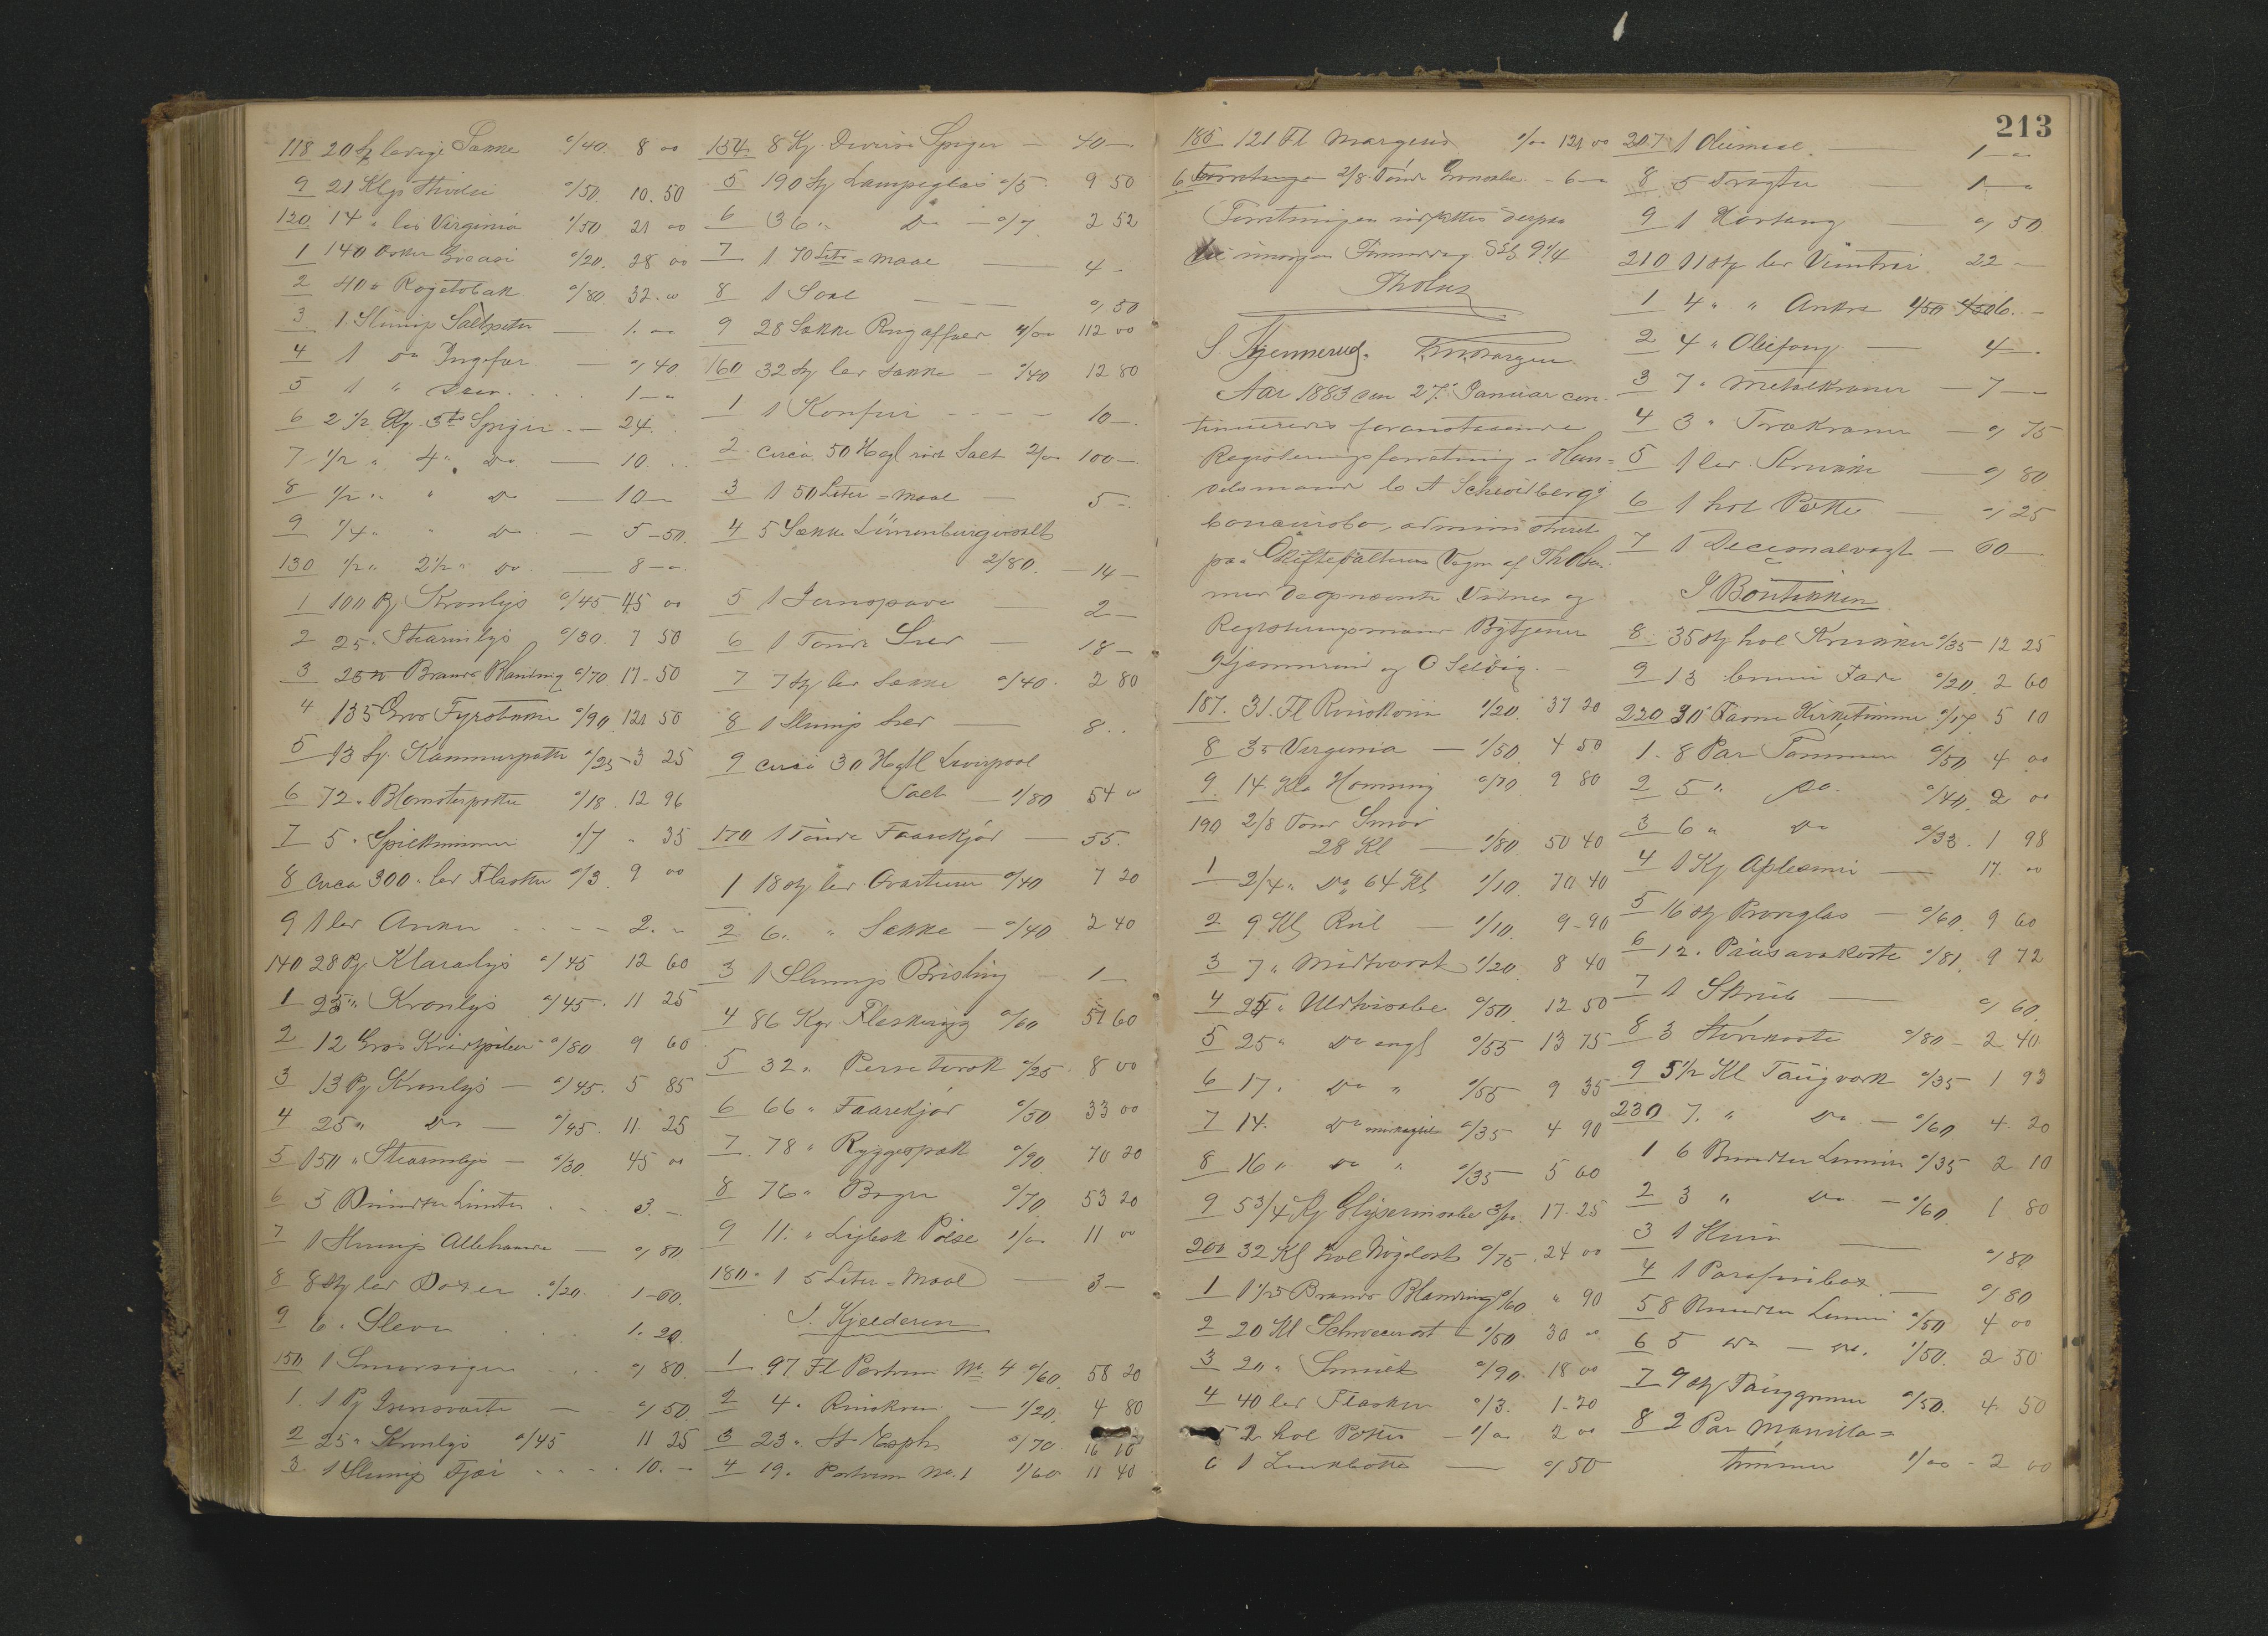 118 20 St ledige Sække 0/40. 8 00
9 21 Klgr 0/50. 10.50
120 14 " løs Virginia 1/50 21 00
1 140 Æsker 0/20. 28 00
2 40 " Røgetobak 0/80. 32.00
3 1 Slump Saltpeter — 1.00
4 1 do Ingefær — 0,40
5 1 " 1 — "
6 2 1/2 Kg. 5 to Spiger — 24.
7 1/2 " 4 " do — 10.
8 1/2 " " do — 10 —
9 1/4 " " do — 5-50.
130 1/2 " 2 1/2 " do — 8 —
1 100 Pk Kronlys 0/45 45 00
2 25 " Stearinlys 0/30. 7 50
3 25 " Brands Blanding 0/70 17-50
4 135 Gros Fyrstikker 0/90. 121 50
5 13 St. Kammerpotter 0/25 - 3 25
6 72 " Blomsterpotter 0/18. 12 96
7 5 " Spilkummer 0/7 " 35
8 circa 300 " led Flasker 0/3. 9 00
9 1 led Anker - - - 2. -
140 28 Pk Klaralys 0/45 12 60
1 25 " Kronlys 0/45. 11 25
2 12 Gros Kridtpiber 0/80 9 60
3 13 Pk Kronlys — 0/45. 5 85
4 25 " do — 0/45. 11. 25
5 150 " Stearinlys — 0/30. 45 00
6 3 Bundter Lunter . . . 3. -
7 1 Slump Allehaande — 0,80.
8 8 St led Daaser 0/20. 1-60.
9 6 " Slever . . . 1. 20.
150 1 . . . 0,80.
1. 1 Pk — 0,50
2 25 " Kronlys 0/45 11 25
3 1 Slump Fjær . . . . 10. -
154. 8 Kg. Diverse Spiger — 40 —
5 190 St Lampeglas 0/5. 9 50
6 36 " do — 0/7 2 52
7 1 10 Liter = Maal — 4 -
8 1 — — 0,50
9 28 Sække Rugaffald 4/00 112 00
160 32 St led Sække — 0/40 12 80
1 1 Komfur - - - - 10 —
2 circa 50 Hegl Salt 2/00 100 —
3 1 50 Liter = Maal — 5 -
4 5 Sække Lüneburgersalt
2/80. — 14 —
5 1 Jernspade — 2 —
6 1 Tønde Sild — 18 —
7 7 St led Sække 0/40. 2 80
8 1 Slump Sild — 8..
9 circa 30 Hegtl Liverpool
Salt — 1/80 54 00
170 1 Tønde Faarekjød — 55.
1 18 St led 0/40 7 20
2 6. " Sække — 0/40 2 40
3 1 Slump Brisling — 1 —
4 86 Kgr Fleskeryg 0/60 51 60
5 32 " Perse torsk 0/25. 8 00
6 66 " Faarekjød 0/50 33 00
7 78 " Ryggespæk 0/90. 70 20
8 76 " Boger 0/70 53 20
9 11. " Lybsk Pölse 1/00 11 00
180. 1 5 Liter = Maal — 3 —
I Kjelderen
1 97 Fl Portvin No: 4 0/60. 58 20
2 4 " Rinskvin — 1/20. 4 80
3 23 " St Esephe 0/70 16 10
4 19 " Portvin No. 1 0/60 11 40
213
185 121 Fl 1/00 121 00
6 Forretningen 2/8 Tønde Grønsæbe — 6 —
Forretningen udsattes derpaa
til imorgen Formiddag Kl 9 1/4
Tholus
S. Kjennerud.
Aar 1883 den 27. Januar con-
tinueredes foranstaaende
Registreringsforretning i Han-
delsmand
Concursbo, administreret
paa Skiftefaltens Vegne af
med de opnævnte Vidner og
Registreringsmænd Bytjener
Kjennerud og O Selvig. —
187. 31. Fl Rinskvin 1/20. 37 20
8 3 " Virginia — 1/50. 4 50
9. 14 Klo Honning 0/70. 9 80
190 2/8 Tønde Smør
28 Kl — 1/80. 50 40
1 2/4 " do 64 Kl 1/10. 70 40
2 9 Kl — 1/10. 9-90
3 7 " Midtvorst 1/20 8 40
4 25 " Uldtvisabe 0/50. 12 50
5 25 " do engl 0/55 13 75
6 17. do " 0/55 9 35
7 14. do 0/35 4 90
8 16 " do " 0/35 5 60
9 5 3/4 Kg Glyserinsabe 3/00. 17-25
200 32 Kl hol Nøgelost 0/75. 24 00
1 1 1/2 Brands Blanding 0/60 " 90
2 20 Kl Schweizerost — 1/50 30 00
3 20 " 0/90. 18 00
4 40 led Flasker 0/3. 1-20
5 2 hol Potter — 1/00 2 00
6 1 — 0,50
207 1 Oliemaal. — 1 —
8 5 Tragter — 1 —
9 1 — 0,50
210 11 St led Vintræ 22 —
1 4 " " Ankre 1/50 6. -
2 4 " Oliefong — 4 —.
3 7 " Metalkraner — 7 —
4 3 " Trækraner — 0,75
5 1 led Krukke — 0,80
6 1 hol Potte — 0,25
7 1 Decimalvægt — 60 —
I Boutikken
8 35 St hol Krukker 0/35 — 12 25
9 13 brune Fade 0/20. 2 60
220 30 Favne Kirketømme 0/17. 5 10
1. 8 Par Tømmer 0/50 4 00
2 5 " do. 0/40. 2 00
3 6 " do 0/33. 1 98
4 1 Kg — 17. 00
5 16 St Prøveglas — 0/60. 9 60
6 12. Piasavakoste 0/81. 9 72
7 1 Skrub — 0,60
8 3 Stuekoste 0/80 — 2 40
9 5 1/2 Kl Taugværk 0/35 1 93
230 7. " do — 0/60 4. 20
1 6 Bundter Liner 0/35 2 10
2 3 " do. — 0/60. 1 80
3 1 — 0,80
4 1 Parafinbox — 0,80
5 8 Bundter Liner 0/50 4 00
6 5 do — do. 0/50. 2 50
7 9 St 0/50. 4. 50
8 2 Par Manilla =
tømmer 1/00 — 2 00